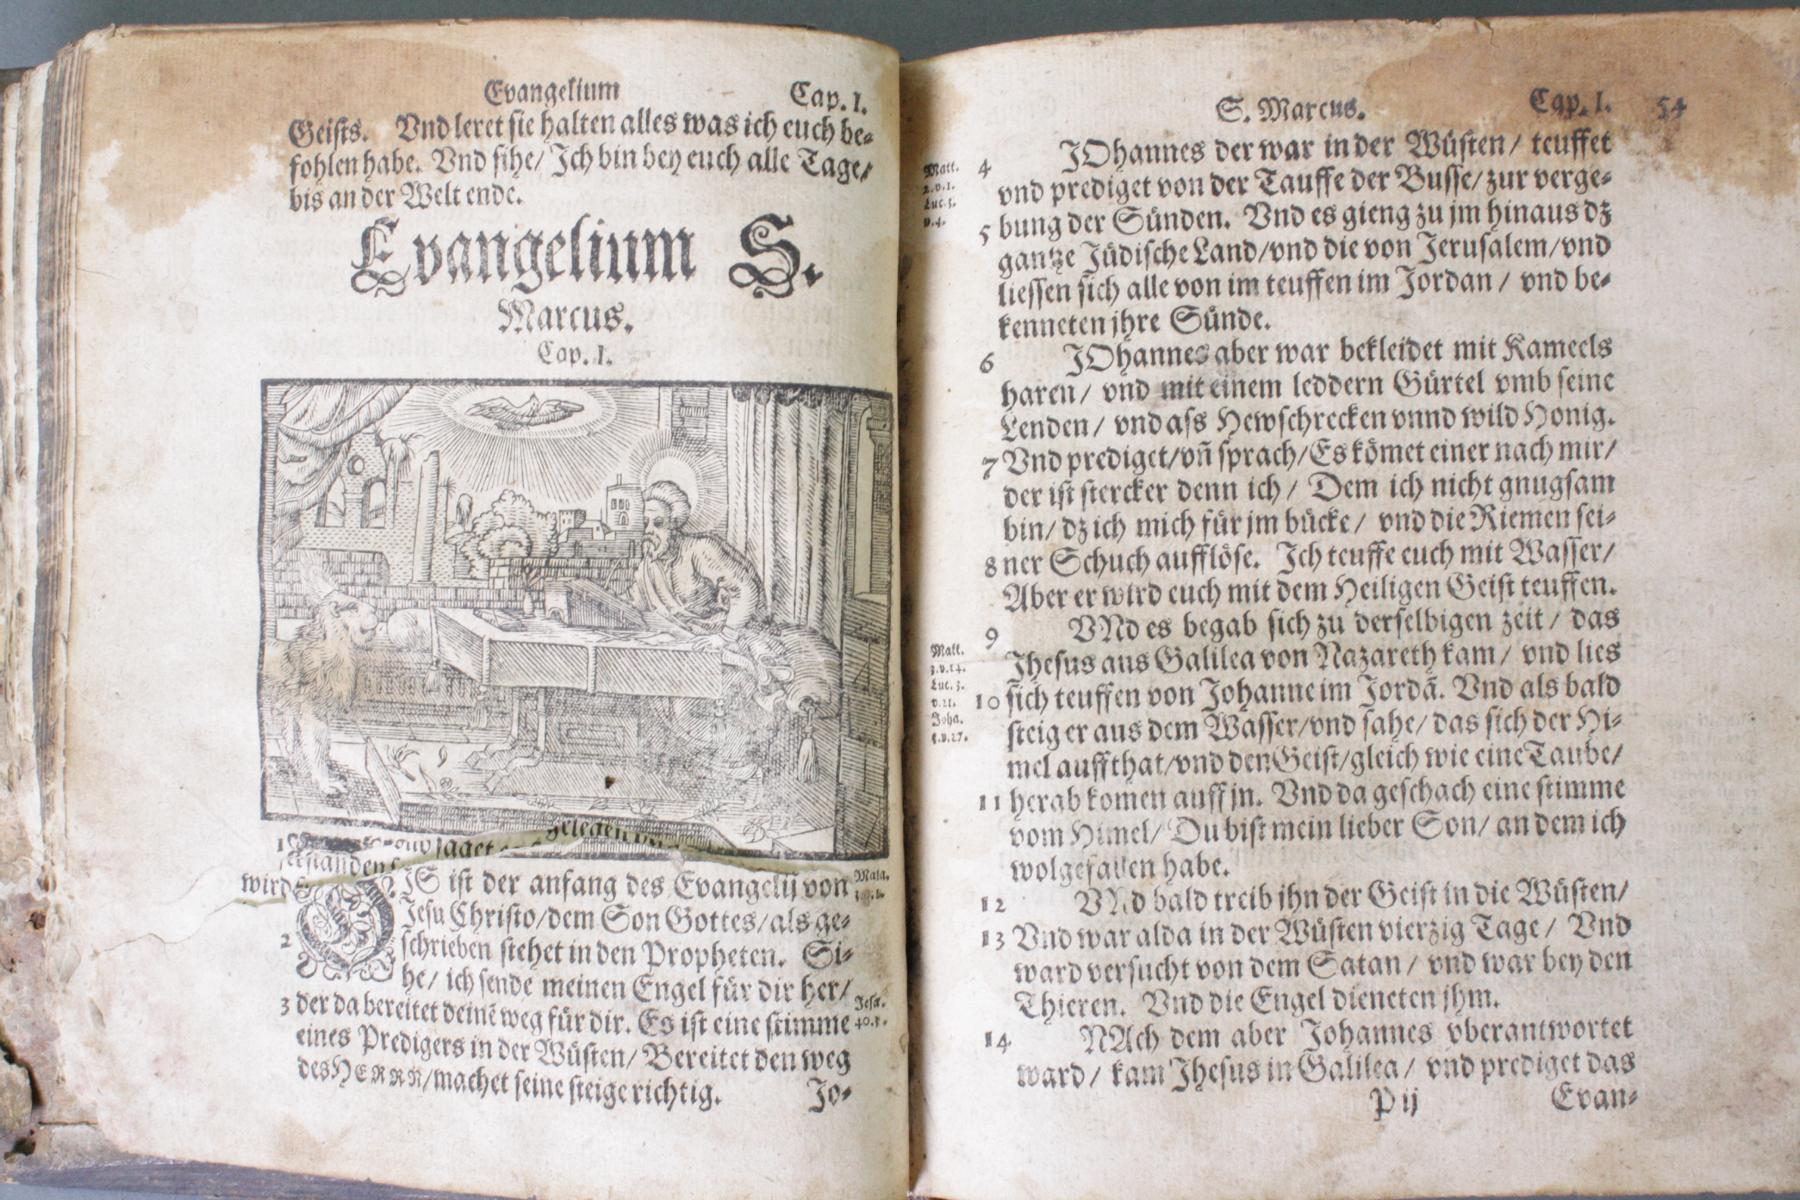 Evangelium Cap. I.
Geists. Vnd leret sie halten alles was ich euch be-
fohlen habe. Vnd sihe/ Ich bin bey euch alle Tage/
bis an der Welt ende.
Evangelium S.
Marcus.
Cap. I.
geleden
saget
standen
wird
DIS ist der anfang des Evangelij von
Jesu Christo/dem Son Gottes/als ge-
2 schrieben stehet in den Propheten. Si-
he/ ich sende meinen Engel für dir her/
3 der da bereitet deinē weg für dir. Es ist eine stimme
eines Predigers in der Wüsten/ Bereitet den weg
des HERRN/machet seine steige richtig.
Jo-
Mala.
Jesa.
40.
S. Marcus. Cap. I. 54
4 JOhannes der war in der Wüsten/ teuffet
vnd prediget von der Tauffe der Busse/zur verge-
5 bung der Sünden. Vnd es gieng zu jm hinaus dz
gantze Jüdische Land/vnd die von Jerusalem/vnd
liessen sich alle von im teuffen im Jordan/ vnd be-
kenneten jhre Sünde.
6 JOhannes aber war bekleidet mit Kameels
haren/ vnd mit einem leddern Gürtel vmb seine
Lenden/ vnd ass Hewschrecken vnnd wild Honig.
7 Vnd prediget/vñ sprach/Es kömet einer nach mir/
der ist stercker denn ich/ Dem ich nicht gnugsam
bin/ dz ich mich für jm bücke/ vnd die Riemen sei-
8 ner Schuch aufflöse. Ich teuffe euch mit Wasser/
Aber er wird euch mit dem Heiligen Geist teuffen.
9 VNd es begab sich zu derselbigen zeit/ das
Jhesus aus Galilea von Nazareth kam/ vnd lies
10 sich teuffen von Johanne im Jordā. Vnd als bald
steig er aus dem Wasser/vnd sahe/ das sich der Hi-
mel auffthat/vnd den Geist/gleich wie eine Taube/
11 herab komen auff jn. Vnd da geschach eine stimme
vom Himel/ Du bist mein lieber Son/ an dem ich
wolgefallen habe.
12 VNd bald treib jhn der Geist in die Wüsten/
13 Vnd war alda in der Wüsten vierzig Tage/ Vnd
ward versucht von dem Satan/ vnd war bey den
Thieren. Vnd die Engel dieneten jhm.
14 NAch dem aber Johannes vberantwortet
ward/ kam Jhesus in Galilea/ vnd prediget das
P ij Evan-
Matt.
Luc. 3.
Matt.
3.v.14.
Luc. 3.
v.21.
Joha.